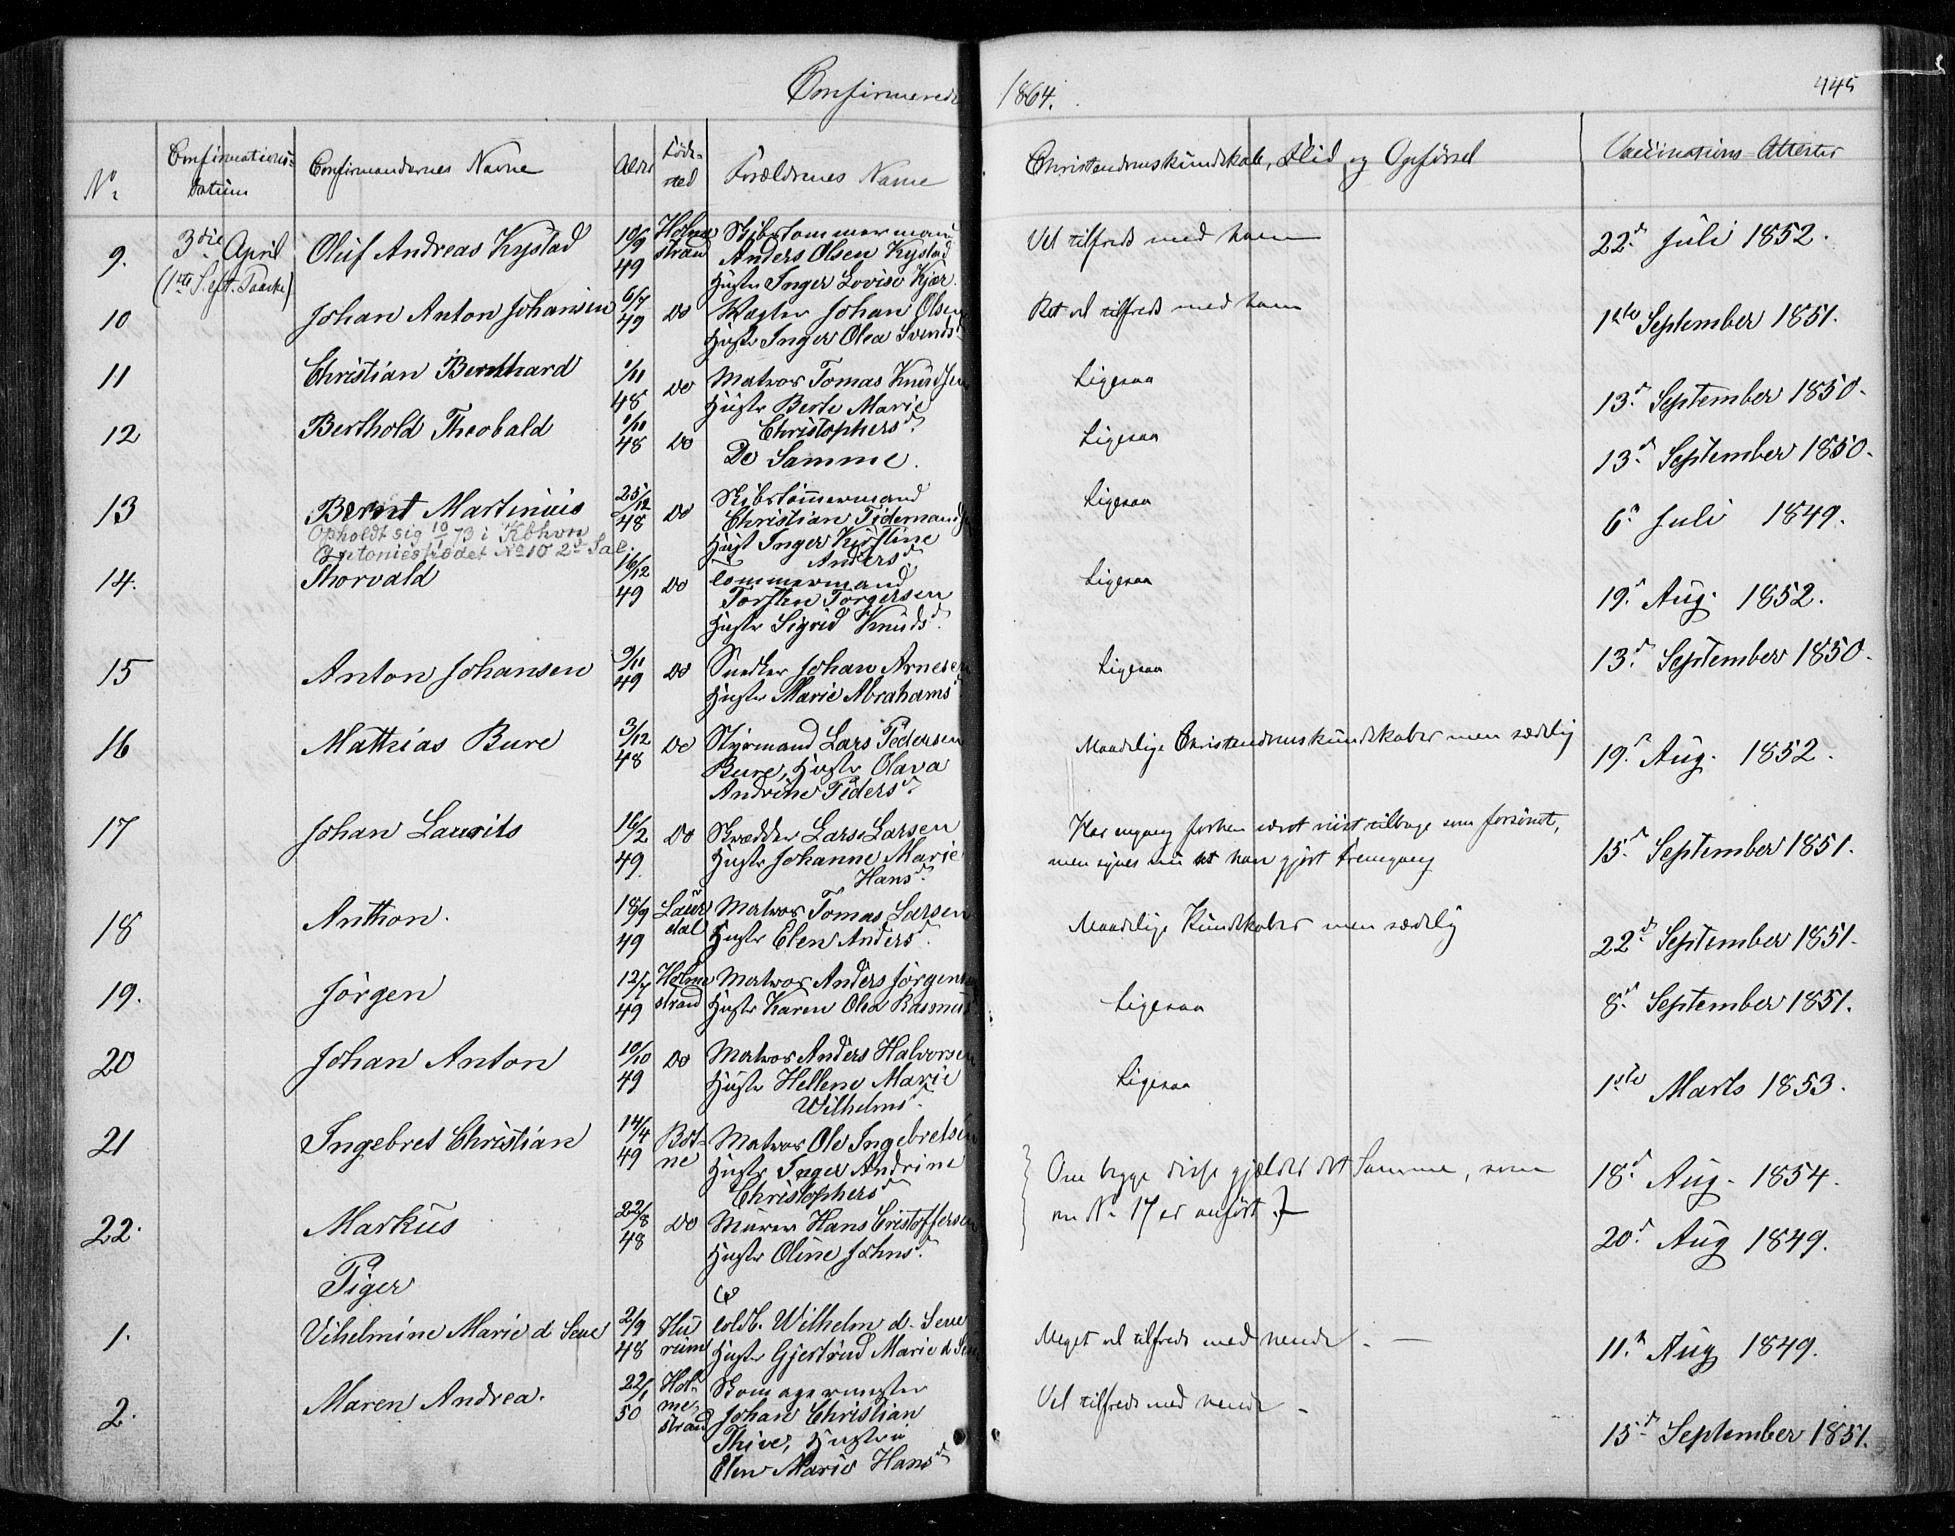 Confirmerede 1864. 445
No. Confirmations-Datum Confirmandernes Navne Alder Fødested Forældrenes Navne Christendomskundskab, Flid og Opførsel Vaccinations-Attester
9. 3die April Oluf Andreas Kystad 10/9 49 Holmestrand Skibstømmermand Vel tilfreds med ham 22d Juli 1852.
Anders Olsen Kystad
(1ste S. eft. Paaske) Hustr Inger Lovise Kjær.
10 Johan Anton Johansen 6/7 49 Do Vægter Johan Olsen Ret vel tilfreds med ham 1ste September 1851.
Hustr Inger Olea Svends
11 Christian Bernthard 1/11 48 Do Matros Tomas Knudsen Ligesaa 13d September 1850.
Hustr Berte Marie
Christophersd.
12 Berthold Theobald 1/11 48 Do De Samme. Ligesaa 13d September 1850.
13 Bernt Martinius 25/12 48 Do Skibstømmermand Ligesaa 6d Juli 1849.
Opholdt sig 10/1 73 i Kbhvn Christian Tidemand
Antoniestrædet No 10 2d Sal. Hust Inger Kirstine
Andersd
14. Thorvald 16/12 49 Do Tømmermand Ligesaa 19d Aug. 1852.
Torsten Torgersen
Hustr Sigrid Knudsd.
15 Anton Johansen 9/11 49 Do Snedker Johan Arnesen Ligesaa 13d September 1850.
Hustr Marie Abrahamsd
16 Mathias Bure 3/12 48 Do Styrmand Lars Pedersen Maadelige Christendomskundskaber men sædelig 19d Aug. 1852.
Bure, Hustr Olava
Andrine Pedersd.
17 Johan Laurits 16/2 49. Do Skrædder Lars Larsen Har engang forhen været viist tilbage som forsømt, 15d September 1851.
Hustr Johanne Marie men synes nu at have gjort Fremgang
Hansd.
18 Anthon. 18/9 49 Laurdal Matros Tomas Larsen Maadelige Kundskaber men sædelig 22d September 1851.
Hustr Elen Andersd.
19. Jörgen 12/7 49 Holmestrand Matros Anders Jörgensen Ligesaa 8d September 1851.
Hustr Karen Olea Rasmus
20 Johan Anton 10/10 49 Do Matros Anders Halvorsen Ligesaa 1ste Marts 1853.
Hustr Hellene Marie
Wilhelmsd.
21 Ingebret Christian 14/4 49 Botne Matros Ole Ingebretsen Om begge disse gjælder det Samme, som 18d Aug. 1854.
Hustr Inger Andrine om No 17 er anført.
Christophersd
22. Markus 22/8 48 Do Murer Hans Cristoffersen 20d Aug 1849.
Hustr Oline Johnsd.
Piger
1. Vilhelmine Marie d Seue 2/9 48 Hurum Toldb. Wilhelm d. Seue Meget vel tilfreds med hende. 11te Aug 1849.
Hustr Gjertrud Marie d Seue
2. Maren Andrea. 22/1 50 Holmestrand Skomagermester Vel tilfreds med hende 15d September 1851.
Johan Christian
Thive, Hustru
Elen Marie Hansd